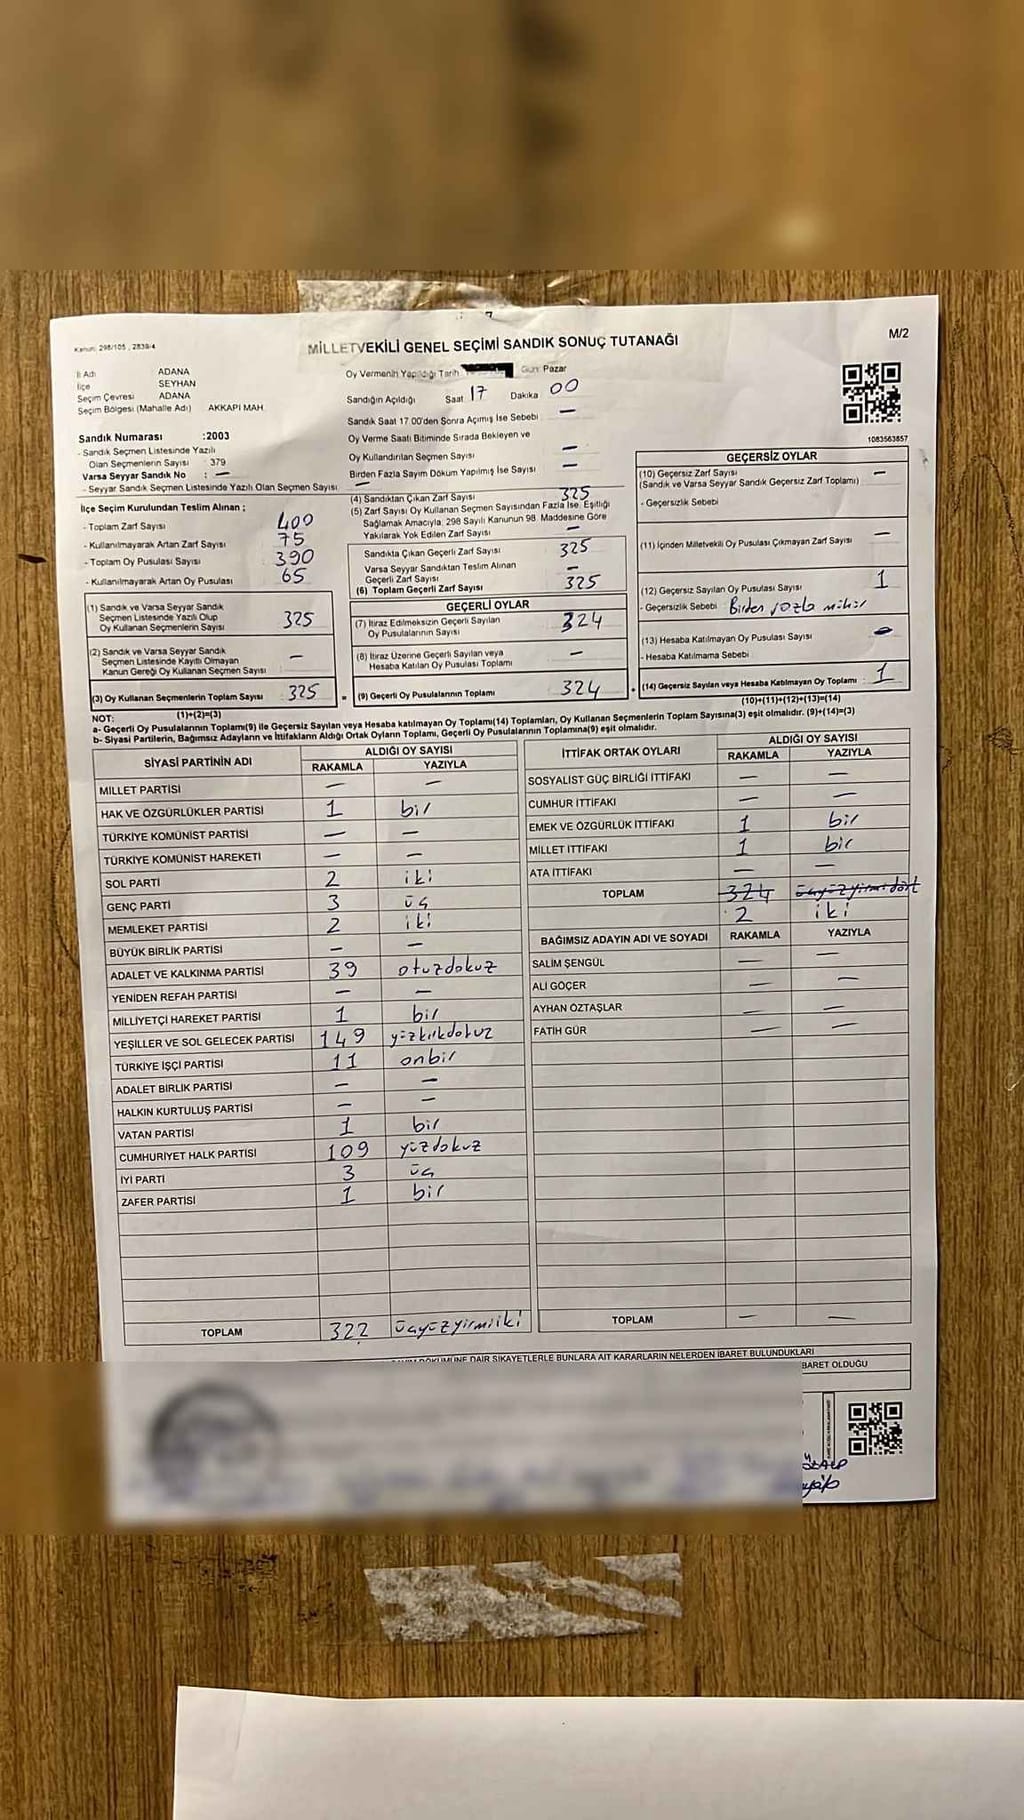 Kanun: 298/105 , 2839/4
MİLLETVEKİLİ GENEL SEÇİMİ SANDIK SONUÇ TUTANAĞI
M/2
İl Adı ADANA
İlçe SEYHAN
Seçim Çevresi ADANA
Seçim Bölgesi (Mahalle Adı) AKKAPI MAH.
Sandık Numarası :2003
- Sandık Seçmen Listesinde Yazılı
Olan Seçmenlerin Sayısı : 379
Varsa Seyyar Sandık No : —
- Seyyar Sandık Seçmen Listesinde Yazılı Olan Seçmen Sayısı —
Oy Vermenin Yapıldığı Tarih Gün: Pazar
Sandığın Açıldığı Saat 17 Dakika 00
Sandık Saat 17 00'den Sonra Açımış İse Sebebi —
Oy Verme Saati Bitiminde Sırada Bekleyen ve
Oy Kullandırılan Seçmen Sayısı —
Birden Fazla Sayım Döküm Yapılmış İse Sayısı —
1083563857
İlçe Seçim Kurulundan Teslim Alınan ;
- Toplam Zarf Sayısı 400
- Kullanılmayarak Artan Zarf Sayısı 75
- Toplam Oy Pusulası Sayısı 390
- Kullanılmayarak Artan Oy Pusulası 65
(1) Sandık ve Varsa Seyyar Sandık
Seçmen Listesinde Yazılı Olup
Oy Kullanan Seçmenlerin Sayısı 325
(2) Sandık ve Varsa Seyyar Sandık
Seçmen Listesinde Kayıtlı Olmayan
Kanun Gereği Oy Kullanan Seçmen Sayısı —
(3) Oy Kullanan Seçmenlerin Toplam Sayısı 325
(1)+(2)=(3)
(4) Sandıktan Çıkan Zarf Sayısı 325
(5) Zarf Sayısı Oy Kullanan Seçmen Sayısından Fazla İse, Eşitliği
Sağlamak Amacıyla, 298 Sayılı Kanunun 98. Maddesine Göre
Yakılarak Yok Edilen Zarf Sayısı —
Sandıkta Çıkan Geçerli Zarf Sayısı 325
Varsa Seyyar Sandıktan Teslim Alınan
Geçerli Zarf Sayısı —
(6) Toplam Geçerli Zarf Sayısı 325
GEÇERLİ OYLAR
(7) İtiraz Edilmeksizin Geçerli Sayılan
Oy Pusulalarının Sayısı 324
(8) İtiraz Üzerine Geçerli Sayılan veya
Hesaba Katılan Oy Pusulası Toplamı —
= (9) Geçerli Oy Pusulalarının Toplamı 324
GEÇERSİZ OYLAR
(10) Geçersiz Zarf Sayısı —
(Sandık ve Varsa Seyyar Sandık Geçersiz Zarf Toplamı)
- Geçersizlik Sebebi
(11) İçinden Milletvekili Oy Pusulası Çıkmayan Zarf Sayısı —
(12) Geçersiz Sayılan Oy Pusulası Sayısı 1
- Geçersizlik Sebebi Birden fazla mühür
(13) Hesaba Katılmayan Oy Pusulası Sayısı —
- Hesaba Katılmama Sebebi
+ (14) Geçersiz Sayılan veya Hesaba Katılmayan Oy Toplamı 1
(10)+(11)+(12)+(13)=(14)
NOT:
a- Geçerli Oy Pusulalarının Toplam(9) ile Geçersiz Sayılan veya Hesaba katılmayan Oy Toplamı(14) Toplamları, Oy Kullanan Seçmenlerin Toplam Sayısına(3) eşit olmalıdır. (9)+(14)=(3)
b- Siyasi Partilerin, Bağımsız Adayların ve İttifakların Aldığı Ortak Oyların Toplamı, Geçerli Oy Pusulalarının Toplamına(9) eşit olmalıdır.
SİYASİ PARTİNİN ADI ALDIĞI OY SAYISI
RAKAMLA YAZIYLA
MİLLET PARTİSİ — —
HAK VE ÖZGÜRLÜKLER PARTİSİ 1 bir
TÜRKİYE KOMÜNİST PARTİSİ — —
TÜRKİYE KOMÜNİST HAREKETİ — —
SOL PARTİ 2 iki
GENÇ PARTİ 3 üç
MEMLEKET PARTİSİ 2 iki
BÜYÜK BİRLİK PARTİSİ — —
ADALET VE KALKINMA PARTİSİ 39 otuzdokuz
YENİDEN REFAH PARTİSİ — —
MİLLİYETÇİ HAREKET PARTİSİ 1 bir
YEŞİLLER VE SOL GELECEK PARTİSİ 149 yüzkırkdokuz
TÜRKİYE İŞÇİ PARTİSİ 11 onbir
ADALET BİRLİK PARTİSİ — —
HALKIN KURTULUŞ PARTİSİ — —
VATAN PARTİSİ 1 bir
CUMHURİYET HALK PARTİSİ 109 yüzdokuz
İYİ PARTİ 3 üç
ZAFER PARTİSİ 1 bir
TOPLAM 322 üçyüzyirmiiki
İTTİFAK ORTAK OYLARI ALDIĞI OY SAYISI
RAKAMLA YAZIYLA
SOSYALİST GÜÇ BİRLİĞİ İTTİFAKI — —
CUMHUR İTTİFAKI — —
EMEK VE ÖZGÜRLÜK İTTİFAKI 1 bir
MİLLET İTTİFAKI 1 bir
ATA İTTİFAKI — —
TOPLAM 324 üçyüzyirmidört
2 iki
BAĞIMSIZ ADAYIN ADI VE SOYADI RAKAMLA YAZIYLA
SALİM ŞENGÜL — —
ALİ GÖÇER — —
AYHAN ÖZTAŞLAR — —
FATİH GÜR — —
TOPLAM — —
DÖKÜMÜNE DAİR ŞİKAYETLERLE BUNLARA AİT KARARLARIN NELERDEN İBARET BULUNDUKLARI
BARET OLDUĞU